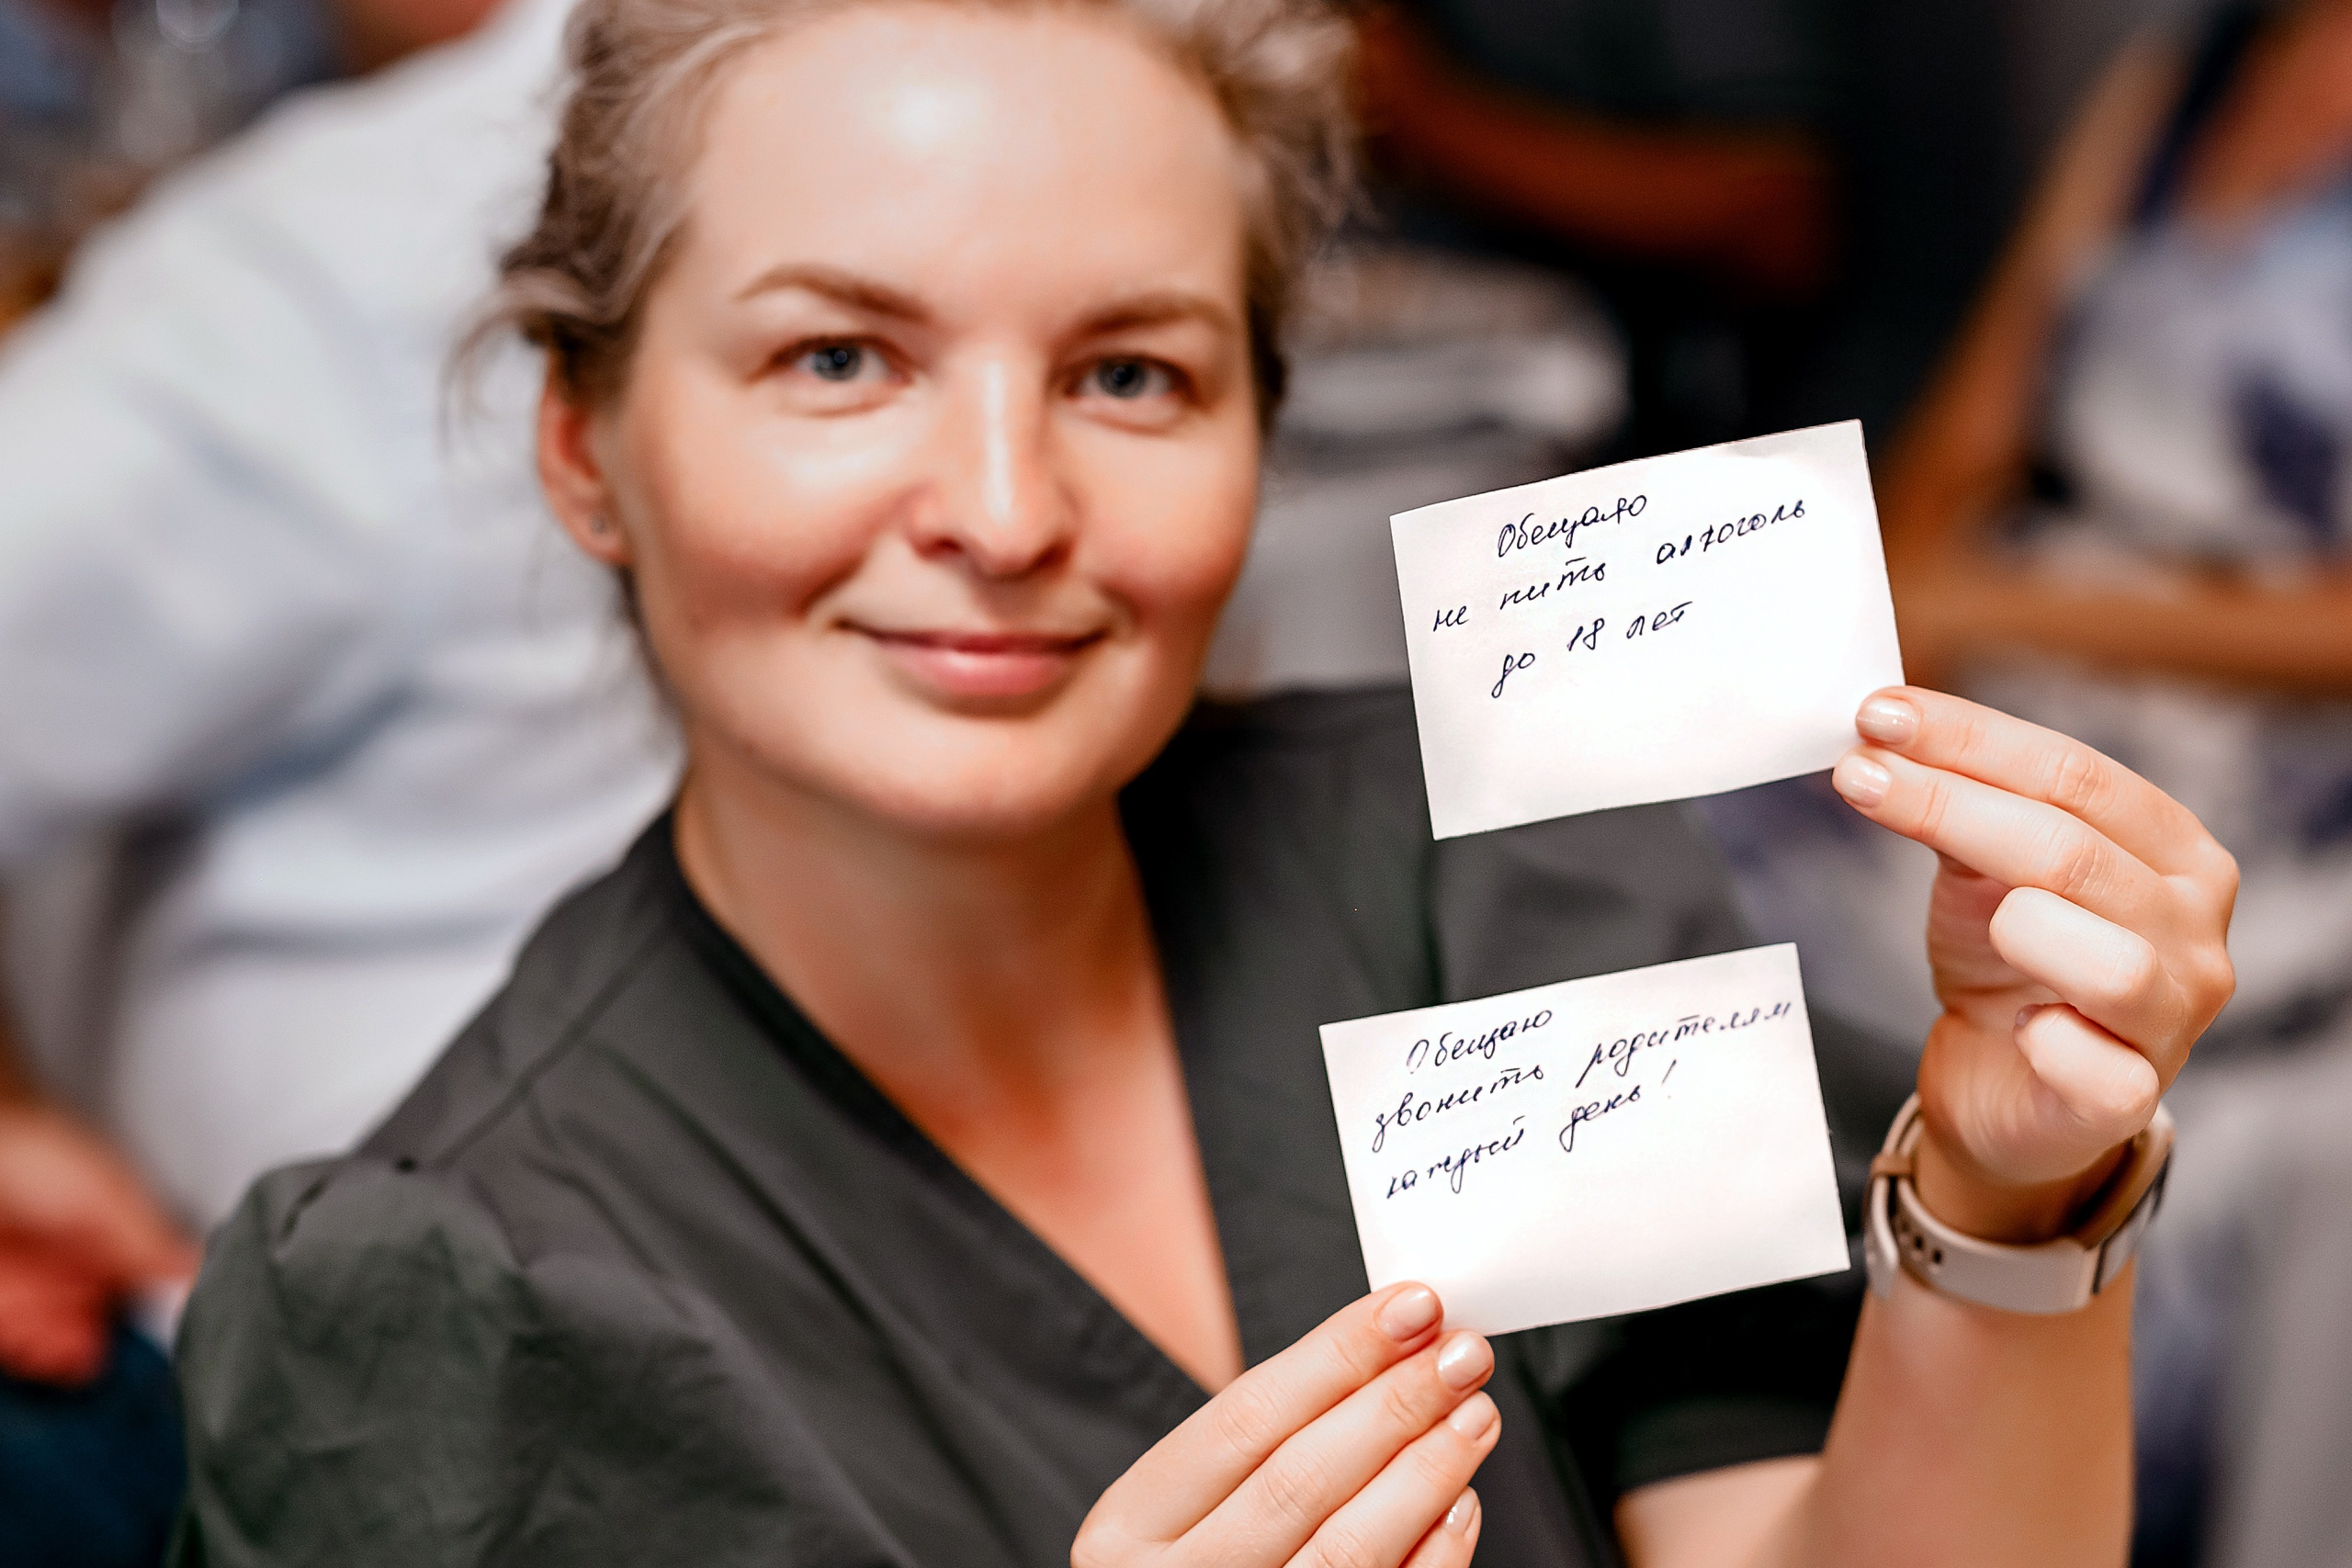 Обещаю
не пить алкоголь
до 18 лет
Обещаю
звонить родителям
каждый день!